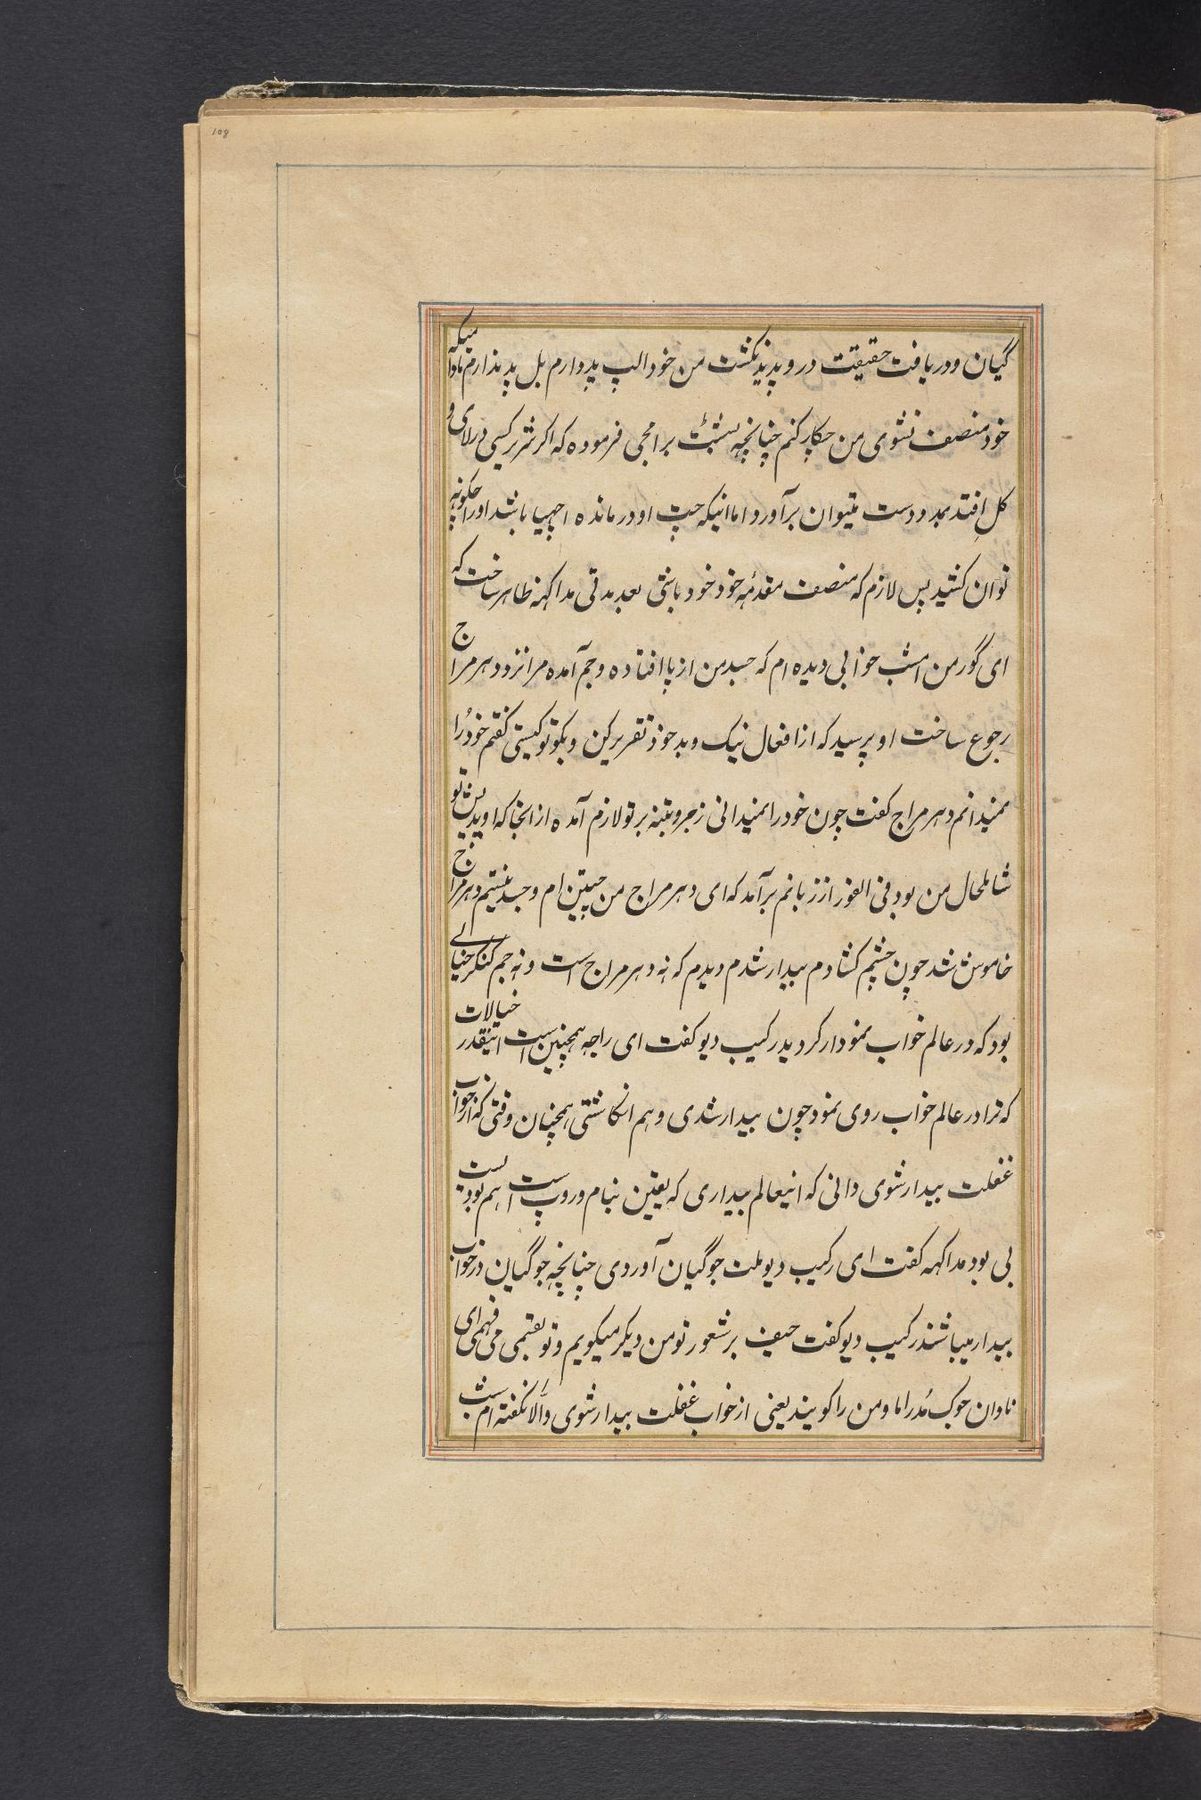 108
گیان و دریافت حقیقت در و پدید نگشت من خود الپ پد دارم بل پد ندارم تا وقتیکه
خود منصف نشوی من چکار کنم چنانچه بششت برامجی فرموده که اگر شتر کسی در لای و
کل افتد بمدد دست میتوان برآورد اما اینکه چت او درمانده اچهیا باشد او را چگونه
توان کشید پس لازم که منصف مقدمه خود خود باشی بعد مدتی مدالکهه ظاهر ساخت که
ای گور من امشب خوابی دیده ام که جسد من از پا افتاده و جم آمده مرا نزد دهرمراج
رجوع ساخت او پرسید که از افعال نیک و بد خود تقریر کن و بگو تو کیستی گفتم خود را
نمیدانم دهرمراج گفت چون خود را نمیدانی زجر و تنبیه بر تو لازم آمده از آنجا که اوپدیش تو
شاملحال من بود فی الفور از زبانم برآمد که ای دهرمراج من چیتین ام و جسد نیستم دهرمراج
خاموش شد چون چشم کشادم بیدار شدم دیدم که نه دهرمراج است و نه جم کنکر خیالے
بود که در عالم خواب نمودار گردید رکهیب دیو گفت ای راجه همچنین است اینقدر خیالات
که ترا در عالم خواب روی نمود چون بیدار شدی وهم انگاشتی همچنان وقتی که از خواب
غفلت بیدار شوی دانی که اینعالم بیداری که یعنی بنام و روپ است هم بودیست
بی بود مدالکهه گفت ای رکهیب دیو ملت جوگیان آوردی چنانچه جوگیان در خواب
بیدار میباشند رکهیب دیو گفت حیف بر شعور تو من دیگر میگویم و تو بقسمی می فهمی ای
نادان جوک مدرا ما و من را گویند یعنی از خواب غفلت بیدار شوی والا نگفته ام شب